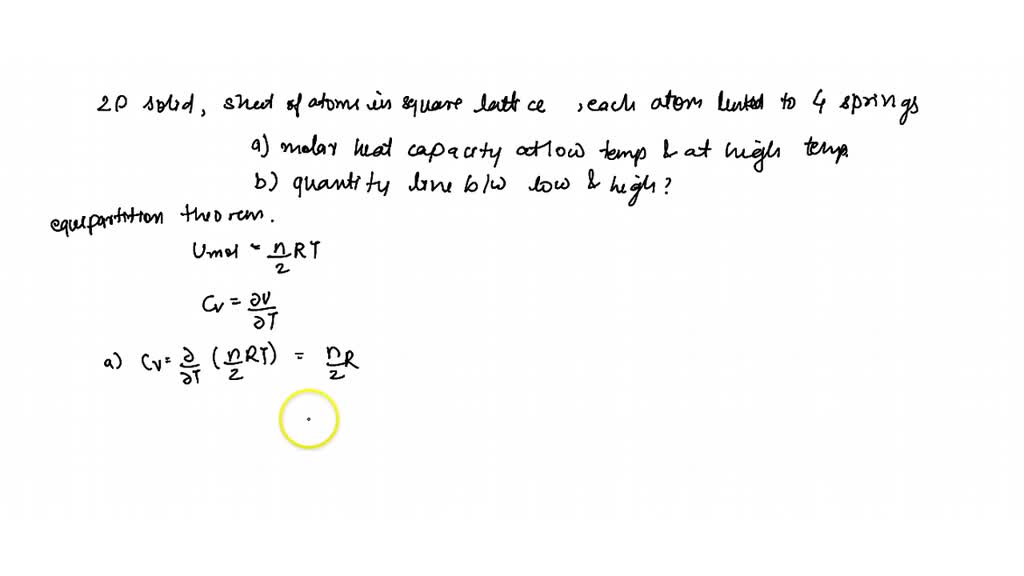 2D solid, sheet of atoms in square lattice, each atom linked to 4 springs
a) molar heat capacity at low temp & at high temp
b) quantity line b/w low & high?
equipartition theorem.
Umol = n/2 RT
Cv = ∂U/∂T
a) Cv = ∂/∂T (n/2 RT) = n/2 R